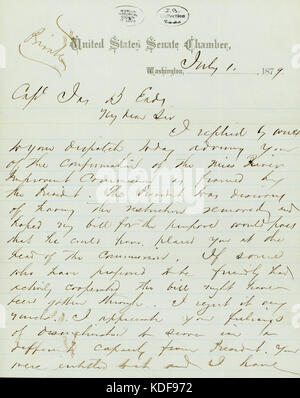 Private
J.B. Eads
Collection
United States Senate Chamber,
Washington, July 1, 1879
Capt Jas B Eads
My Dear Sir
I replied by wire
to your dispatch today advising you
of the confirmation of the Miss River
Improvement Commission as framed by
the President. The President was desirous
of having the restriction removed and
hoped my bill for the purpose would pass
that he could have placed you at the
head of the Commission. If some
who have professed to be friendly had
actively cooperated the bill might have
been gotten through. I regret it very
much. I appreciate your feelings
of disinclination to serve in a
different capacity from President. You
were entitled to it and I have
alamy
Image ID: KDF972
www.alamy.com